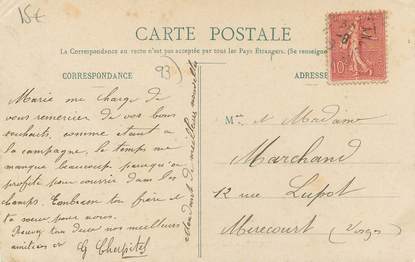 15€
CARTE POSTALE
La Correspondance au recto n'est pas acceptée par tous les Pays Étrangers. (Se renseigner
CORRESPONDANCE
93
ADRESSE
10
Marie me charge de
vous remercier de vos bons
souhaits, comme étant à
la campagne, le temps me
manque beaucoup, puisqu'on
profite pour courir dans les
champs. Ton frère et
ta sœur pour nous.
tu dire nos meilleurs
amitiés
G Cherpitel
meilleure nouvelle
Mr et Madame
Marchand
12 rue Lupot
Mirecourt
Vosges